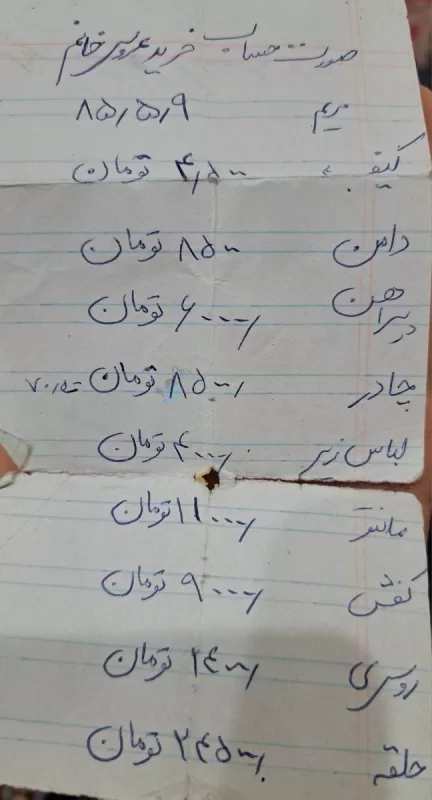 صورت حساب خرید عروس خانم
مریم ۸۵٫۵٫۹
کیف ۴٫۵۰۰ تومان
دامن ۸۵۰۰ تومان
پیراهن ۶۰۰۰ تومان
چادر ۸۵۰۰ تومان
لباس زیر ۴۰۰۰ تومان
مانتو ۱۱۰۰۰ تومان
کفش ۹۰۰۰ تومان
روسری ۱۴۰۰ تومان
حلقه ۲۴۵۰۰ تومان